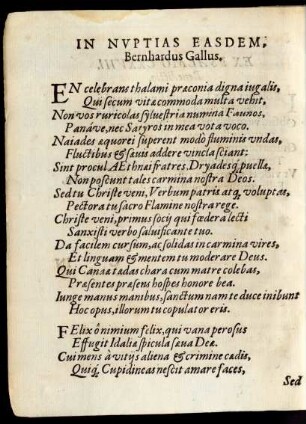 IN NVPTIAS EASDEM,
Bernhardus Gallus.
EN celebrans thalami præconia digna iugalis,
Qui secum vitæ commoda multa vehit,
Non vos ruricolas sylvestria numina Faunos,
Panáve, nec Satyros in mea vota voco.
Naiades aquorei superent modo fluminis vndas,
Fluctibus & sæuis addere vincla sciant:
Sint procul AEthnæi fratres, Dryadesq́ puellæ,
Non poscunt tales carmina nostra Deos.
Sed tu Christe veni, Verbum patris atq, voluptas,
Pectora tu sacro Flamine nostra rege.
Christe veni, primus socij qui fœdera lecti
Sanxisti verbo saluificante tuo.
Da facilem cursum, ac solidas in carmina vires,
Et linguam & mentem tu moderare Deus.
Qui Canaæ tædas chara cum matre colebas,
Præsentes præsens hospes honore bea.
Iunge manus manibus, sanctum nam te duce inibunt
Hoc opus, illorum tu copulator eris.
FElix ô nimium felix, qui vana perosus
Effugit Idaliæ spicula sæua Deæ.
Cui mens à vitijs aliena & crimine cædis,
Quiq́ Cupidineas nescit amare faces,
Sed